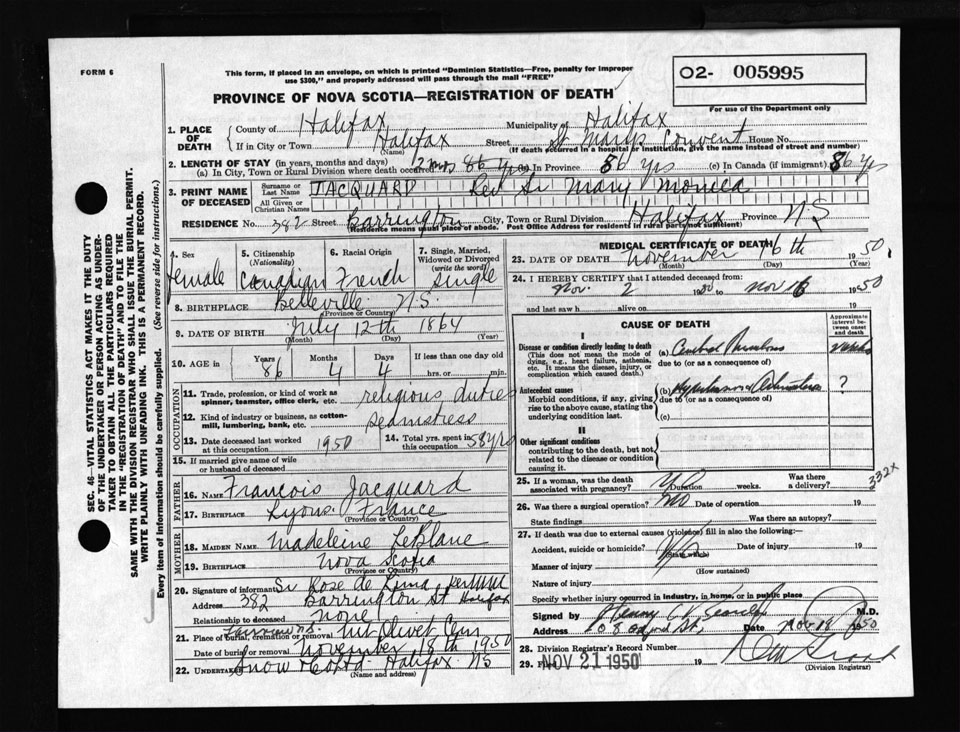 FORM 6
This form, if placed in an envelope, on which is printed "Dominion Statistics—Free, penalty for improper
use $300," and properly addressed will pass through the mail "FREE"
O2- 005995
For use of the Department only
PROVINCE OF NOVA SCOTIA—REGISTRATION OF DEATH
1. PLACE OF DEATH
County of Halifax Municipality of Halifax
If in City or Town Halifax (Name) Street St Marys Convent House No.
(If death occurred in a hospital or institution, give the name instead of street and number)
2. LENGTH OF STAY (in years, months and days)
(a) In City, Town or Rural Division where death occurred 86 yrs In Province 86 yrs (c) In Canada (if immigrant) 86 yrs
3. PRINT NAME OF DECEASED
Surname or Last Name JACQUARD Rev Sr Mary Monica
All Given or Christian Names
RESIDENCE No. 382 Street Barrington City, Town or Rural Division Halifax Province N S
Residence means usual place of abode. Post Office Address for residents in rural parts not sufficient)
4. Sex female
5. Citizenship (Nationality) Canadian
6. Racial Origin French
7. Single, Married, Widowed or Divorced (write the word) single
8. BIRTHPLACE Belleville N.S.
(Province or Country)
9. DATE OF BIRTH July 12th 1864
(Month) (Day) (Year)
10. AGE in Years 86 Months 4 Days 4 If less than one day old
hrs. or min.
OCCUPATION
11. Trade, profession, or kind of work as spinner, teamster, office clerk, etc. religious duties
12. Kind of industry or business, as cotton-mill, lumbering, bank, etc. seamstress
13. Date deceased last worked at this occupation 1950
14. Total yrs. spent in this occupation 58 yrs
15. If married give name of wife or husband of deceased
FATHER
16. Name Francois Jacquard
17. Birthplace Lyons. France
(Province or Country)
MOTHER
18. Maiden Name Madeleine LeBlanc
19. Birthplace Nova Scotia
(Province or Country)
20. Signature of informant Sr Rose de Lima
Address 382 Barrington St Halifax
Relationship to deceased none
21. Place of burial, cremation or removal Fairview N.S. Mt Olivet Cem
Date of burial or removal November 18th 1950
22. UNDERTAKER Snow & Co Ltd Halifax NS
(Name and address)
MEDICAL CERTIFICATE OF DEATH
23. DATE OF DEATH November 16th 1950
(Month) (Day) (Year)
24. I HEREBY CERTIFY that I attended deceased from:
Nov. 2 1950 to Nov 16 1950
and last saw h alive on 19
CAUSE OF DEATH
Approximate interval between onset and death
I
Disease or condition directly leading to death
(This does not mean the mode of dying, e.g., heart failure, asthenia, etc. It means the disease, injury, or complication which caused death.)
(a) Cerebral
due to (or as a consequence of)
Antecedent causes
Morbid conditions, if any, giving rise to the above cause, stating the underlying condition last.
(b) ?
due to (or as a consequence of)
(c)
II
Other significant conditions
contributing to the death, but not related to the disease or condition causing it.
25. If a woman, was the death associated with pregnancy? No Duration weeks. Was there a delivery?
332X
26. Was there a surgical operation? No Date of operation 19
State findings Was there an autopsy?
27. If death was due to external causes (violence) fill in also the following:
Accident, suicide or homicide? (State which) Date of injury 19
Manner of injury (How sustained)
Nature of injury
Specify whether injury occurred in Industry, in home, or in public place
Signed by Henry M.D.
Address Date Nov 18 1950
28. Division Registrar's Record Number
29. Filed NOV 21 1950 19
(Division Registrar)
SEC. 46—VITAL STATISTICS ACT MAKES IT THE DUTY
OF THE UNDERTAKER OR PERSON ACTING AS UNDER-
TAKER TO OBTAIN ALL THE PARTICULARS REQUIRED
IN THE "REGISTRATION OF DEATH" AND TO FILE THE
SAME WITH THE DIVISION REGISTRAR WHO SHALL ISSUE THE BURIAL PERMIT.
WRITE PLAINLY WITH UNFADING INK. THIS IS A PERMANENT RECORD.
Every item of information should be carefully supplied. (See reverse side for instructions.)